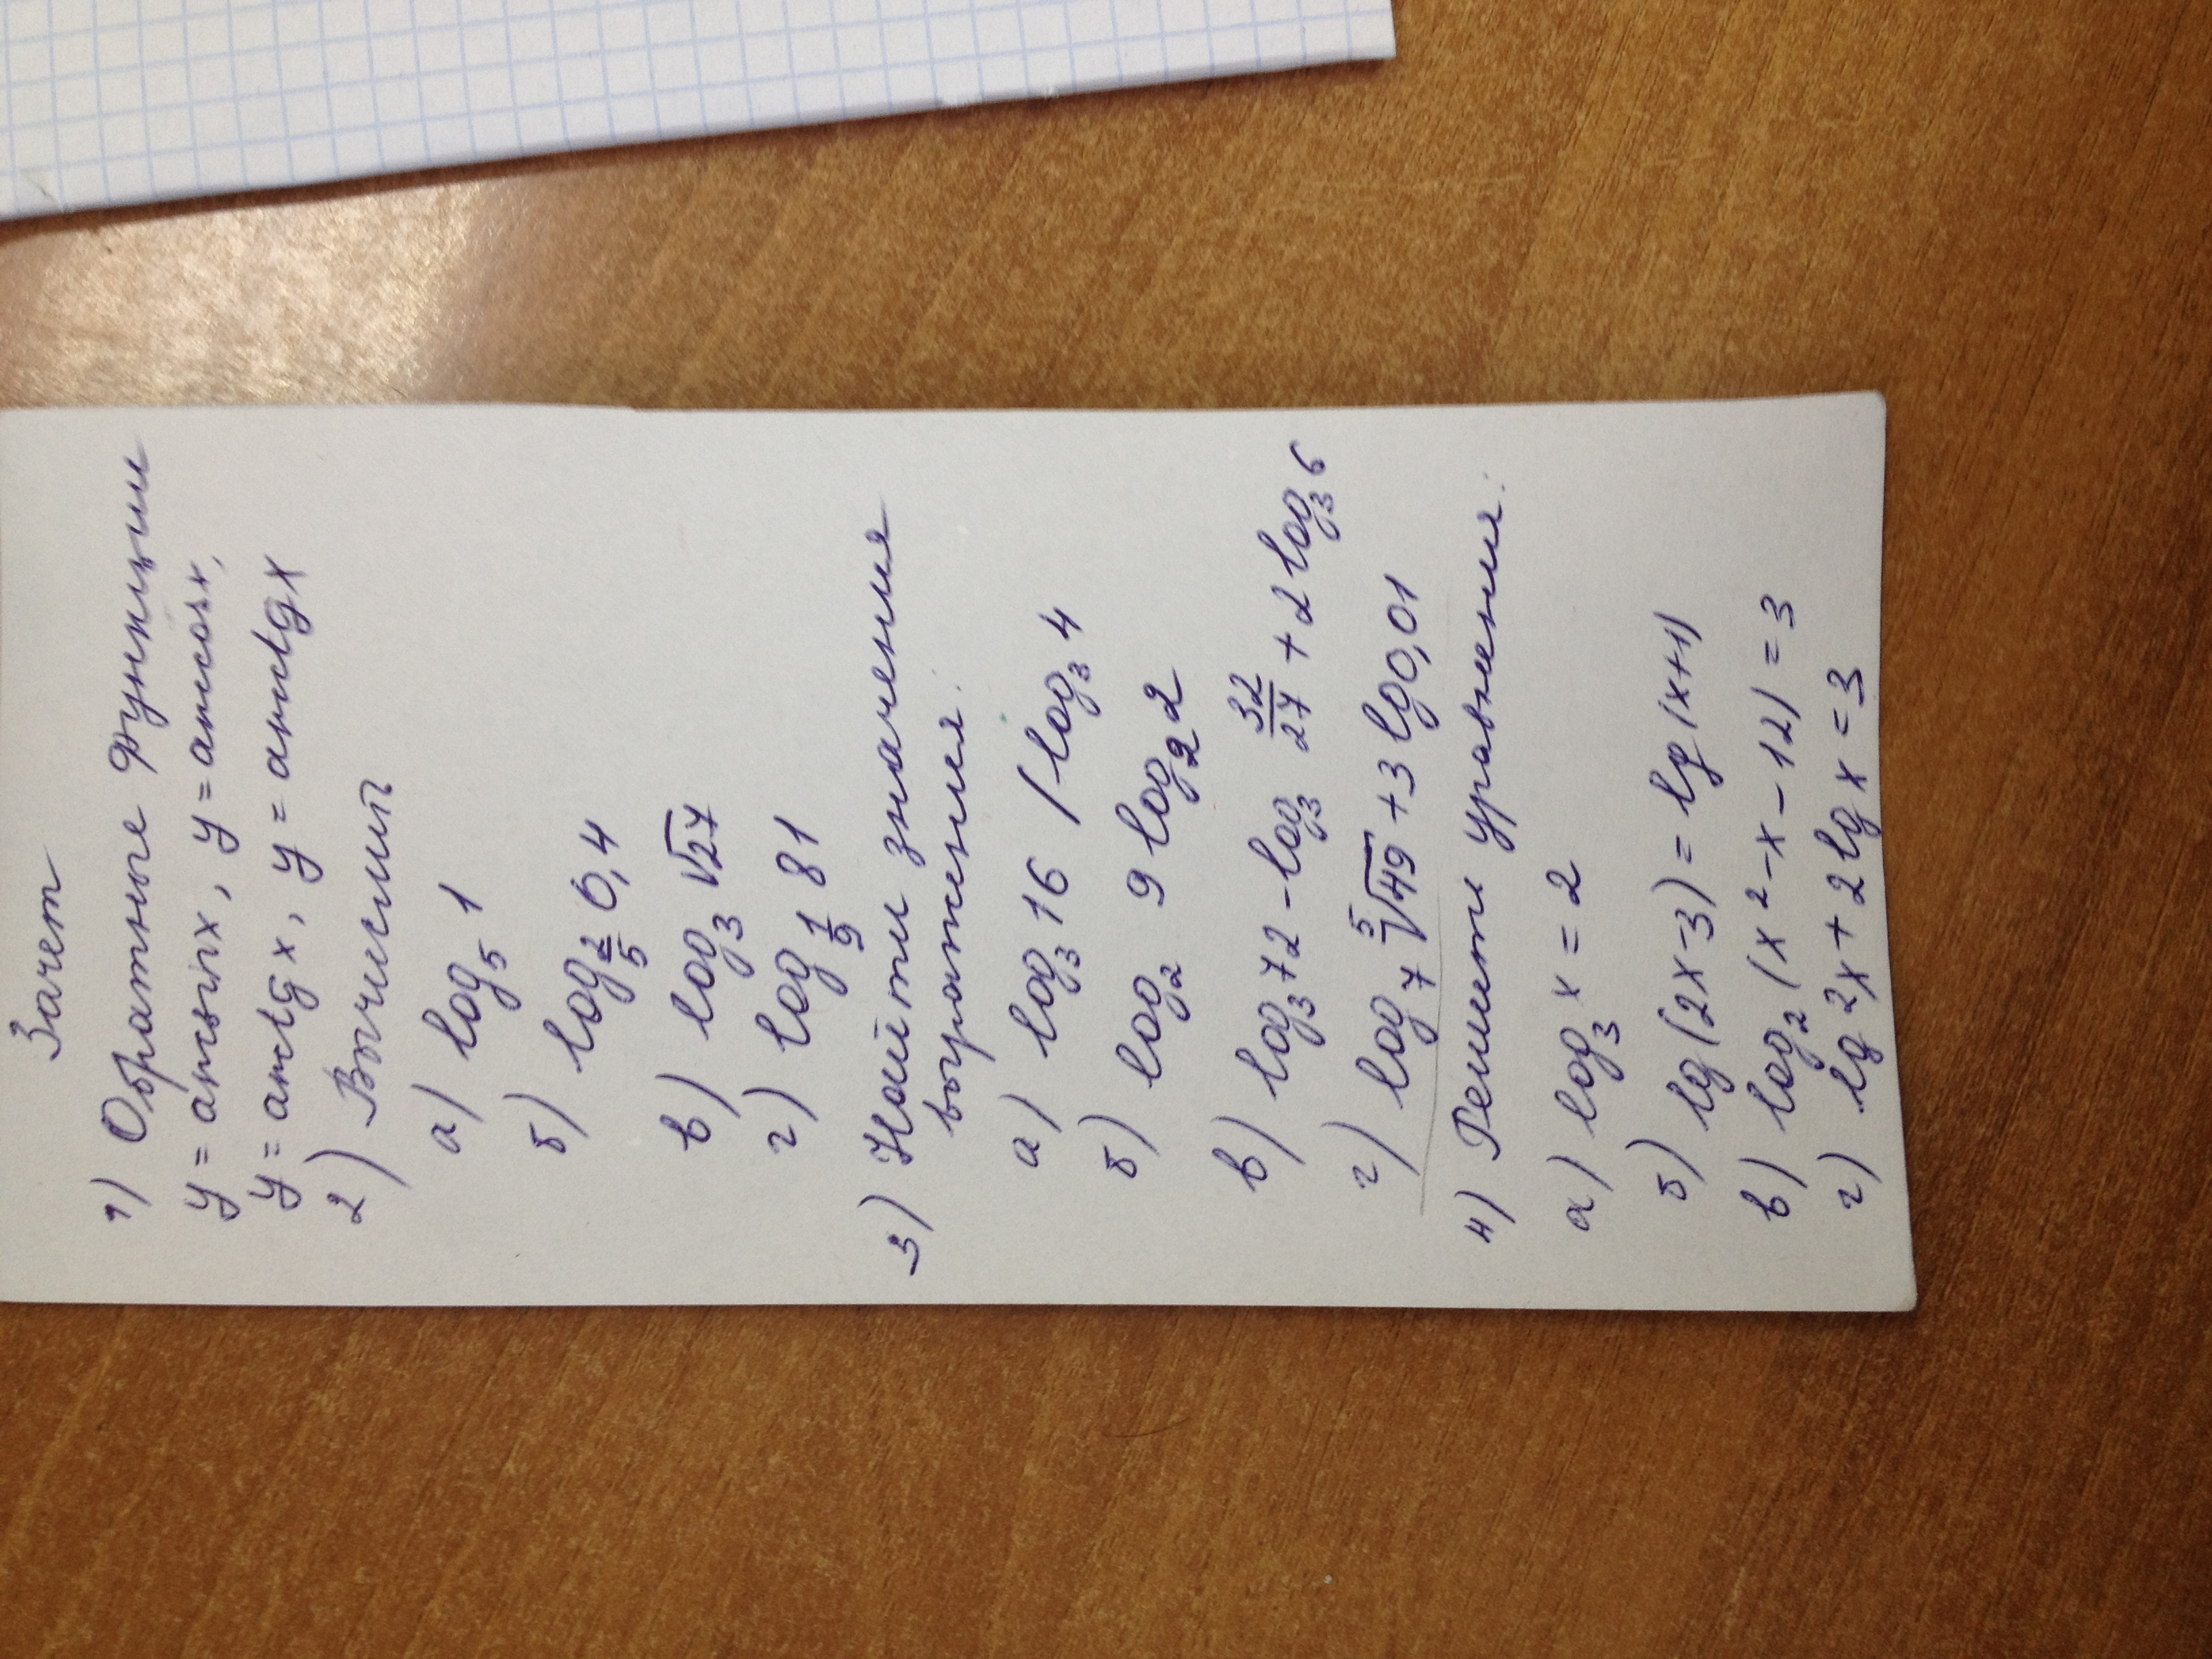 Зачет
1) Обратные функции
y = arcsin x, y = arccos x,
y = arctg x, y = arcctg x
2) Вычислить
а) log₅ 1
б) log_{2/5} 0,4
в) log₃ √27
г) log_{1/9} 81
3) Найти значения
выражения:
а) log₃ 16 / log₃ 4
б) log₂ 9 log₂ 2
в) log₃ 72 - log₃ 32/27 + 2 log₃ 6
г) log₇ ⁵√49 + 3 lg 0,01
4) Решити уравнения:
а) log₃ x = 2
б) lg (2x-3) = lg (x+1)
в) log₂ (x² - x - 12) = 3
г) lg²x + 2 lg x = 3